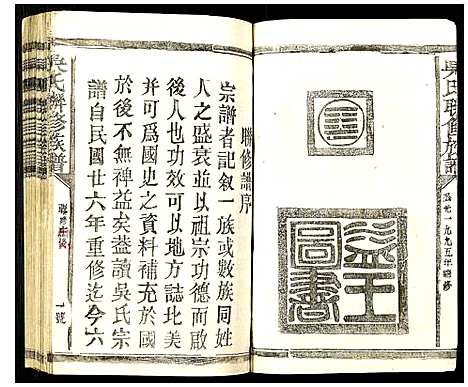 吳氏聯修族譜
公元一九九五年續修
益王圖書
聯修譜序
宗譜者記叙一族或數族同姓
人之盛衰並以祖宗功德而啟
後人也功效可以地方誌北美
并可為國史之資料補充於國
於後不無裨益矣益讀吳氏宗
譜自民國廿六年重修迄今六
吳氏聯修族譜
一號